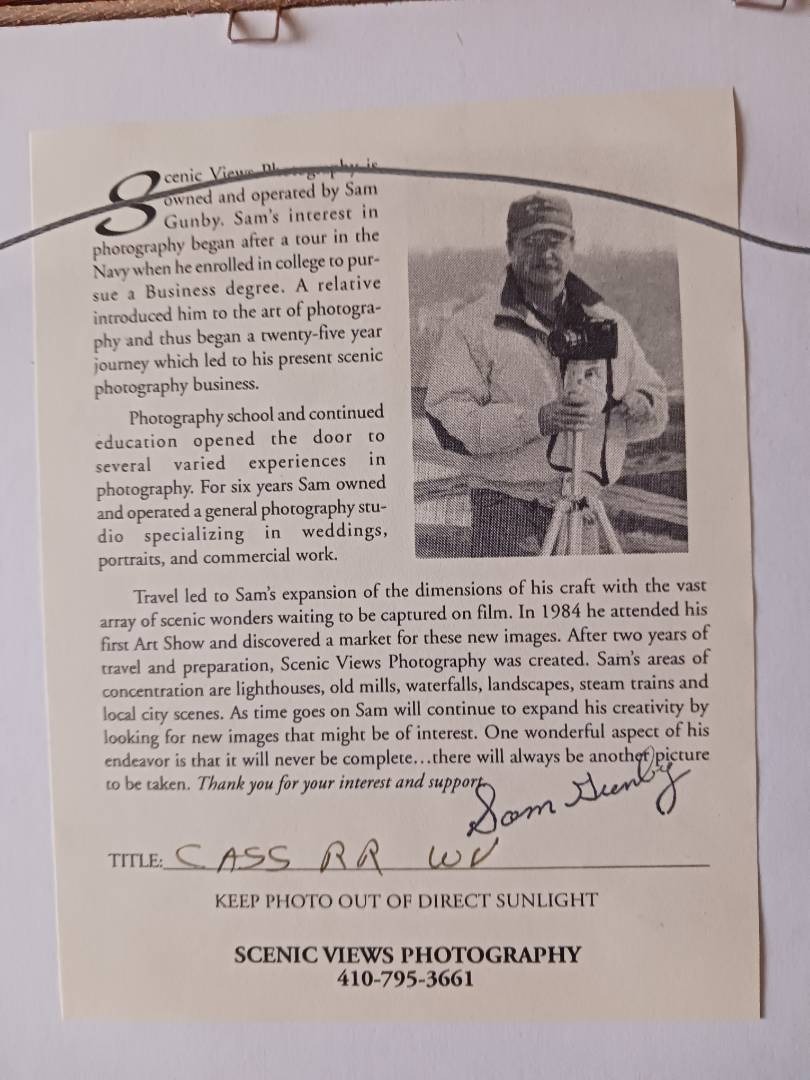 Scenic Views Photography is
owned and operated by Sam
Gunby. Sam's interest in
photography began after a tour in the
Navy when he enrolled in college to pur-
sue a Business degree. A relative
introduced him to the art of photogra-
phy and thus began a twenty-five year
journey which led to his present scenic
photography business.
Photography school and continued
education opened the door to
several varied experiences in
photography. For six years Sam owned
and operated a general photography stu-
dio specializing in weddings,
portraits, and commercial work.
Travel led to Sam's expansion of the dimensions of his craft with the vast
array of scenic wonders waiting to be captured on film. In 1984 he attended his
first Art Show and discovered a market for these new images. After two years of
travel and preparation, Scenic Views Photography was created. Sam's areas of
concentration are lighthouses, old mills, waterfalls, landscapes, steam trains and
local city scenes. As time goes on Sam will continue to expand his creativity by
looking for new images that might be of interest. One wonderful aspect of his
endeavor is that it will never be complete...there will always be another picture
to be taken. Thank you for your interest and support.
Sam Gunby
TITLE: CASS RR WV
KEEP PHOTO OUT OF DIRECT SUNLIGHT
SCENIC VIEWS PHOTOGRAPHY
410-795-3661